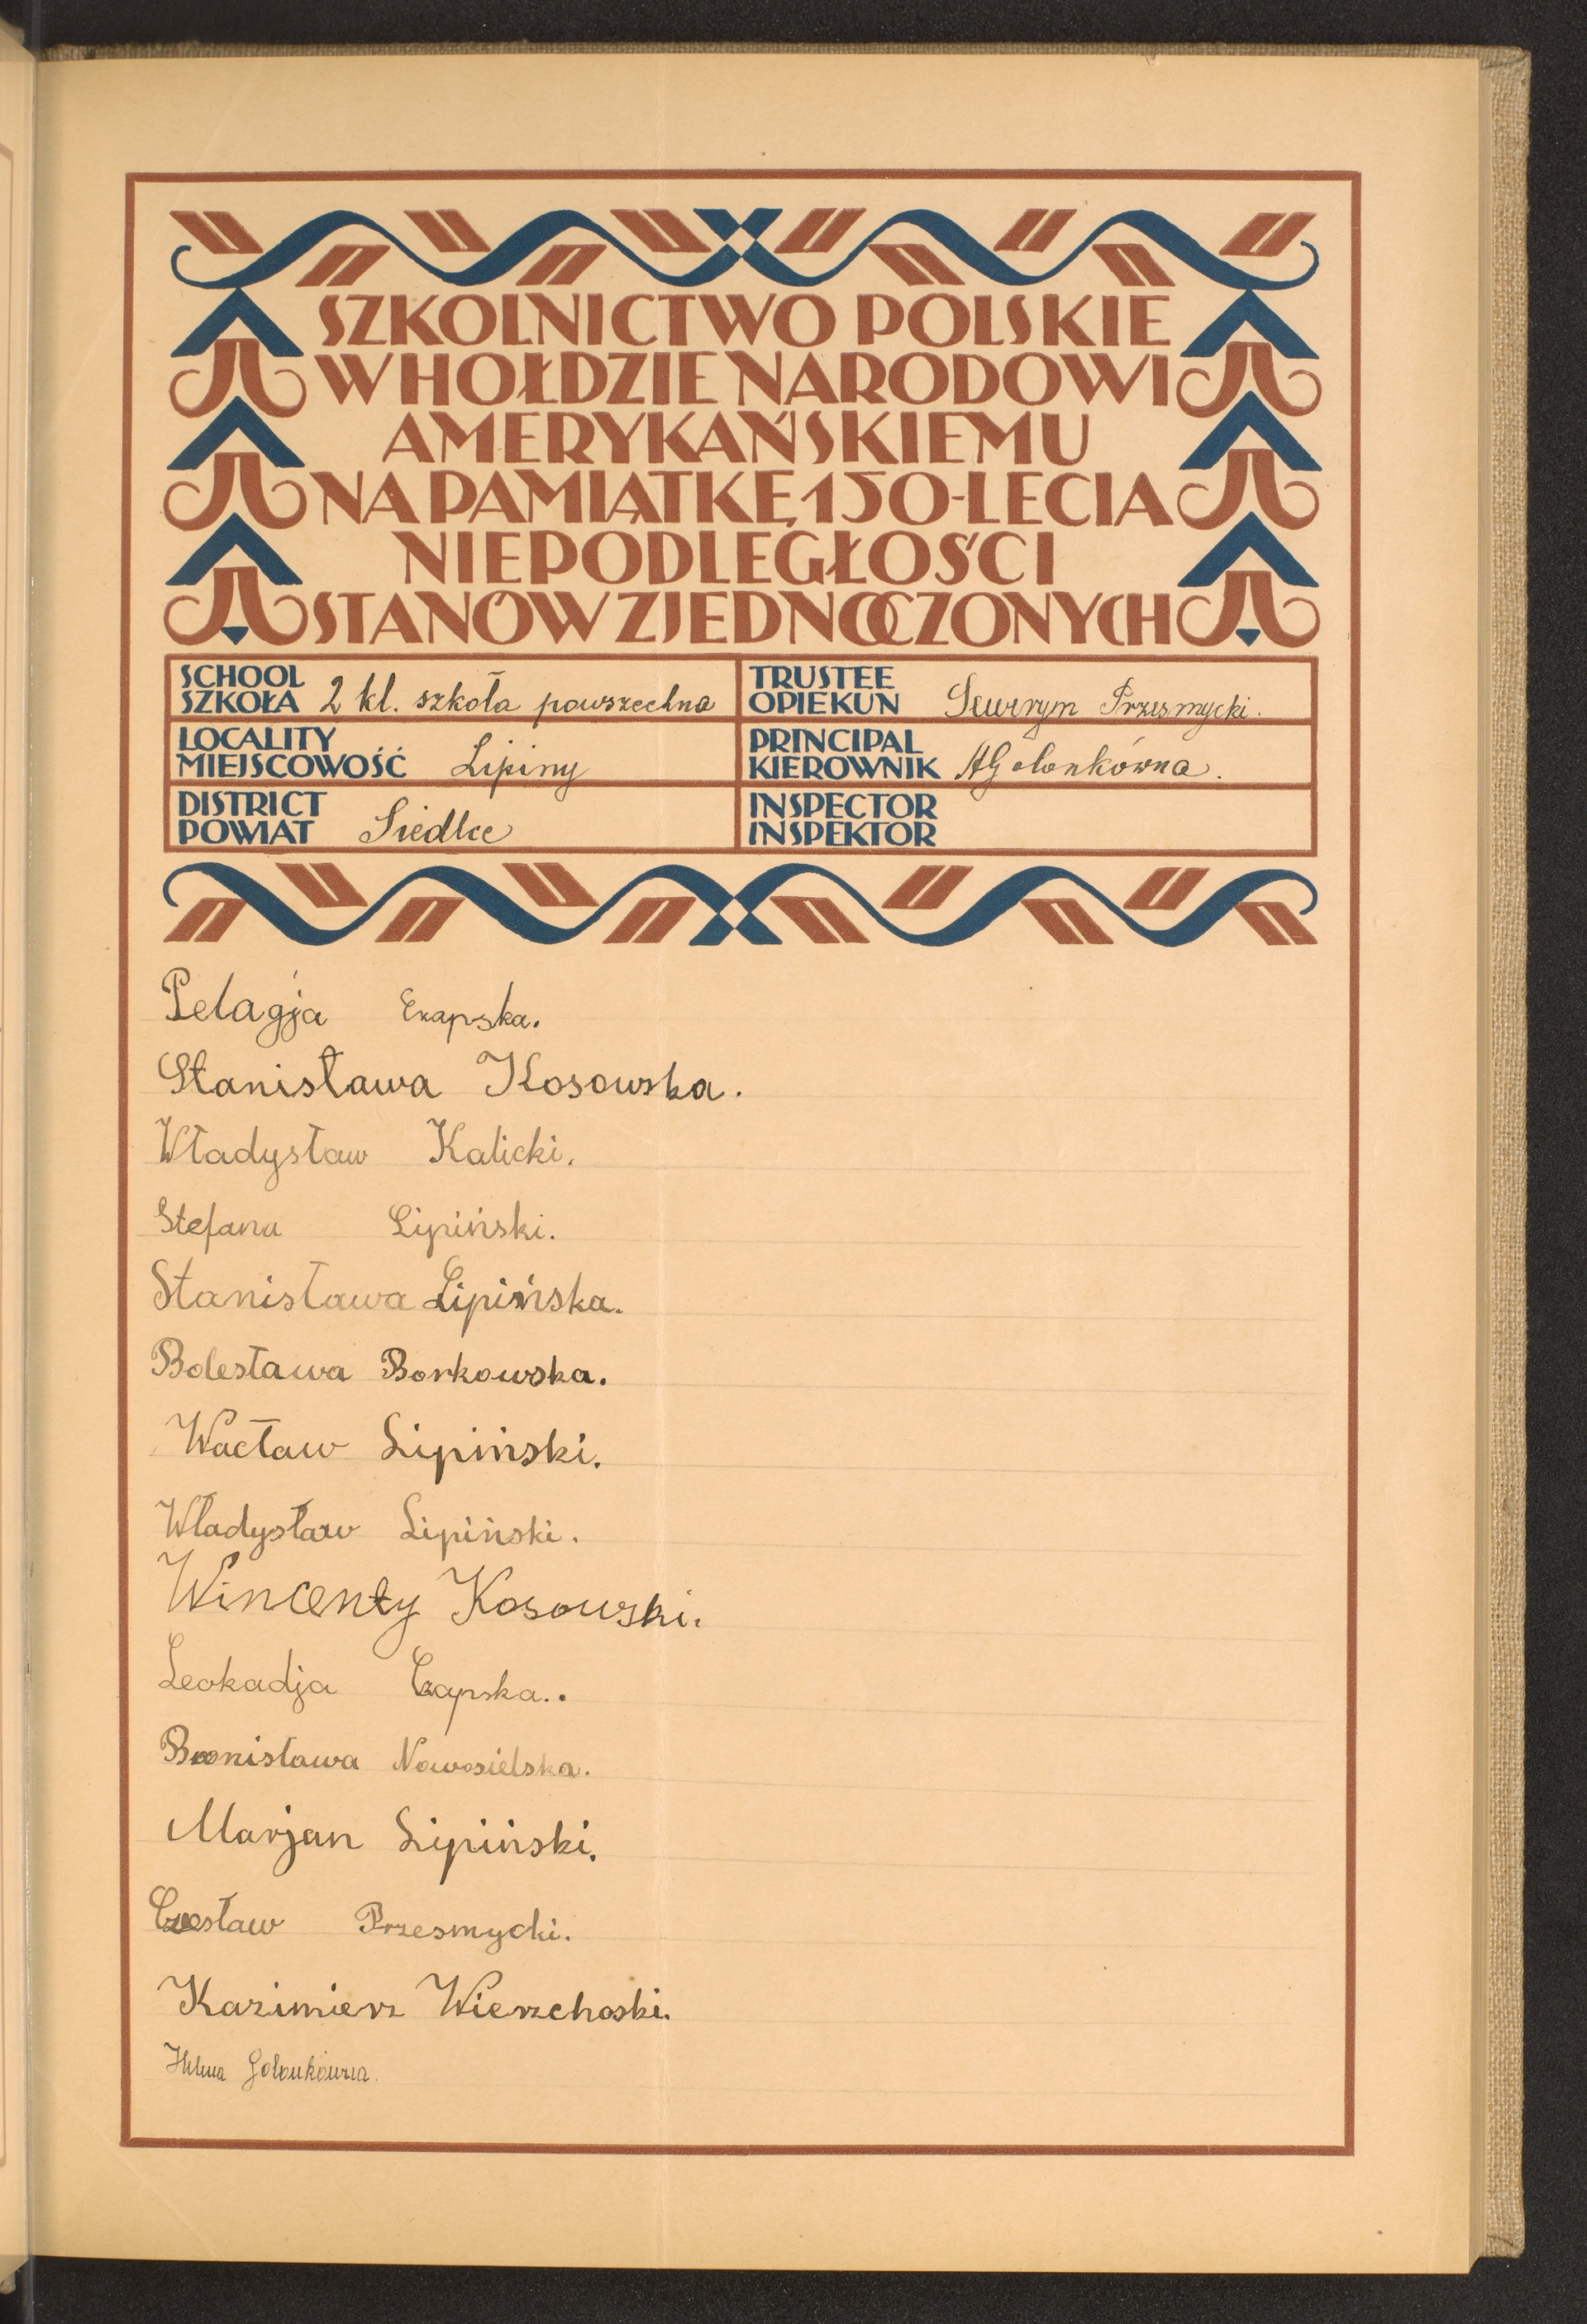 SZKOLNICTWO POLSKIE
W HOŁDZIE NARODOWI
AMERYKAŃSKIEMU
NA PAMIĄTKĘ 150-LECIA
NIEPODLEGŁOŚCI
STANÓW ZJEDNOCZONYCH
SCHOOL
SZKOŁA 2 kl. szkoła powszechna
TRUSTEE
OPIEKUN Seweryn Przesmycki.
LOCALITY
MIEJSCOWOŚĆ Lipiny
PRINCIPAL
KIEROWNIK AGolonkówna.
DISTRICT
POWIAT Siedlce
INSPECTOR
INSPEKTOR
Pelagja Czapska.
Stanisława Kosowska.
Władysław Kalicki.
Stefana Lipiński.
Stanisława Lipińska.
Bolesława Borkowska.
Wacław Lipiński.
Władysław Lipiński.
Wincenty Kosowski.
Leokadja Czapska..
Bronisława Nowosielska.
Marjan Lipiński.
Czesław Przesmycki.
Kazimierz Wierzchoski.
Helena Golonkówna.